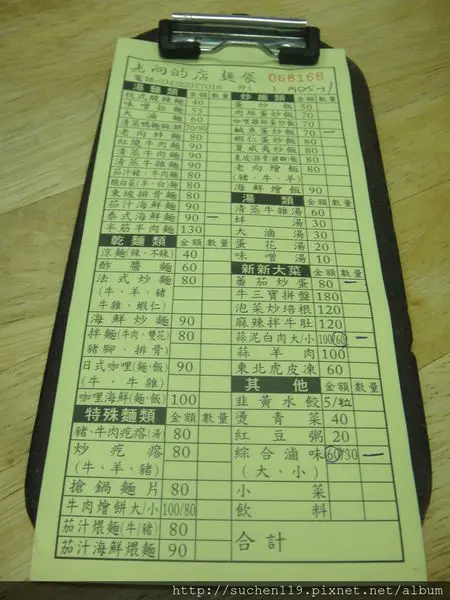 老向的店 麵食 068168
電話:(04)22377016 外( ) 內(05-1)
湯麵類 金額 數量
40
味噌拉麵 55
大滷麵 60
70/90
老向鮮麵 80
紅燒牛肉麵 90
清蒸牛肉麵 90
清蒸牛雜麵 90
茄汁豬、牛肉麵 80
酸白菜(羊、白)麵 80
東坡排骨麵 80
茄汁海鮮麵 90
泰式海鮮麵 90
半筋半肉麵 130
乾麵類 金額 數量
涼麵(辣、不辣) 40
酢醬麵 60
法式炒麵 80
(牛、羊、豬
牛雜、蝦仁)
海鮮炒麵 90
拌麵(牛肉、雙花) 80
豬腳、排骨
日式咖哩(麵、飯) 90
(牛、牛雜)
咖哩海鮮(麵、飯) 100
特殊麵類 金額 數量
豬、牛肉疙瘩(湯) 80
炒疙瘩 80
(牛、羊、豬)
搶鍋麵片 80
牛肉燴餅大/小 100/80
茄汁煨麵(牛/豬) 80
茄汁海鮮煨麵 90
炒飯類 金額 數量
蛋炒飯 50
肉絲蛋炒飯 70
咖哩雞柳蛋炒飯 70
鹹魚蛋炒飯 70
蝦仁蛋炒飯 80
夏威夷炒飯 80
東坡(排骨豬腳)飯 80
老向燴飯 80
(豬、牛、羊)
海鮮燴飯 90
湯類 金額 數量
清蒸牛雜湯 60
蚌湯 30
大滷湯 30
蛋花湯 20
味噌湯 10
新新大菜 金額 數量
蕃茄炒蛋 80
牛三寶拼盤 180
泡菜炒培根 120
麻辣拌牛肚 120
蒜泥白肉大/小 100/60
蒜羊肉 100
東北虎皮凍 60
其他 金額 數量
韭黃水餃 5/粒
燙青菜 40
紅豆粥 20
綜合滷味 60/30
(大、小)
小菜
飲料
合計
http://suchen119.pixnet.net/album